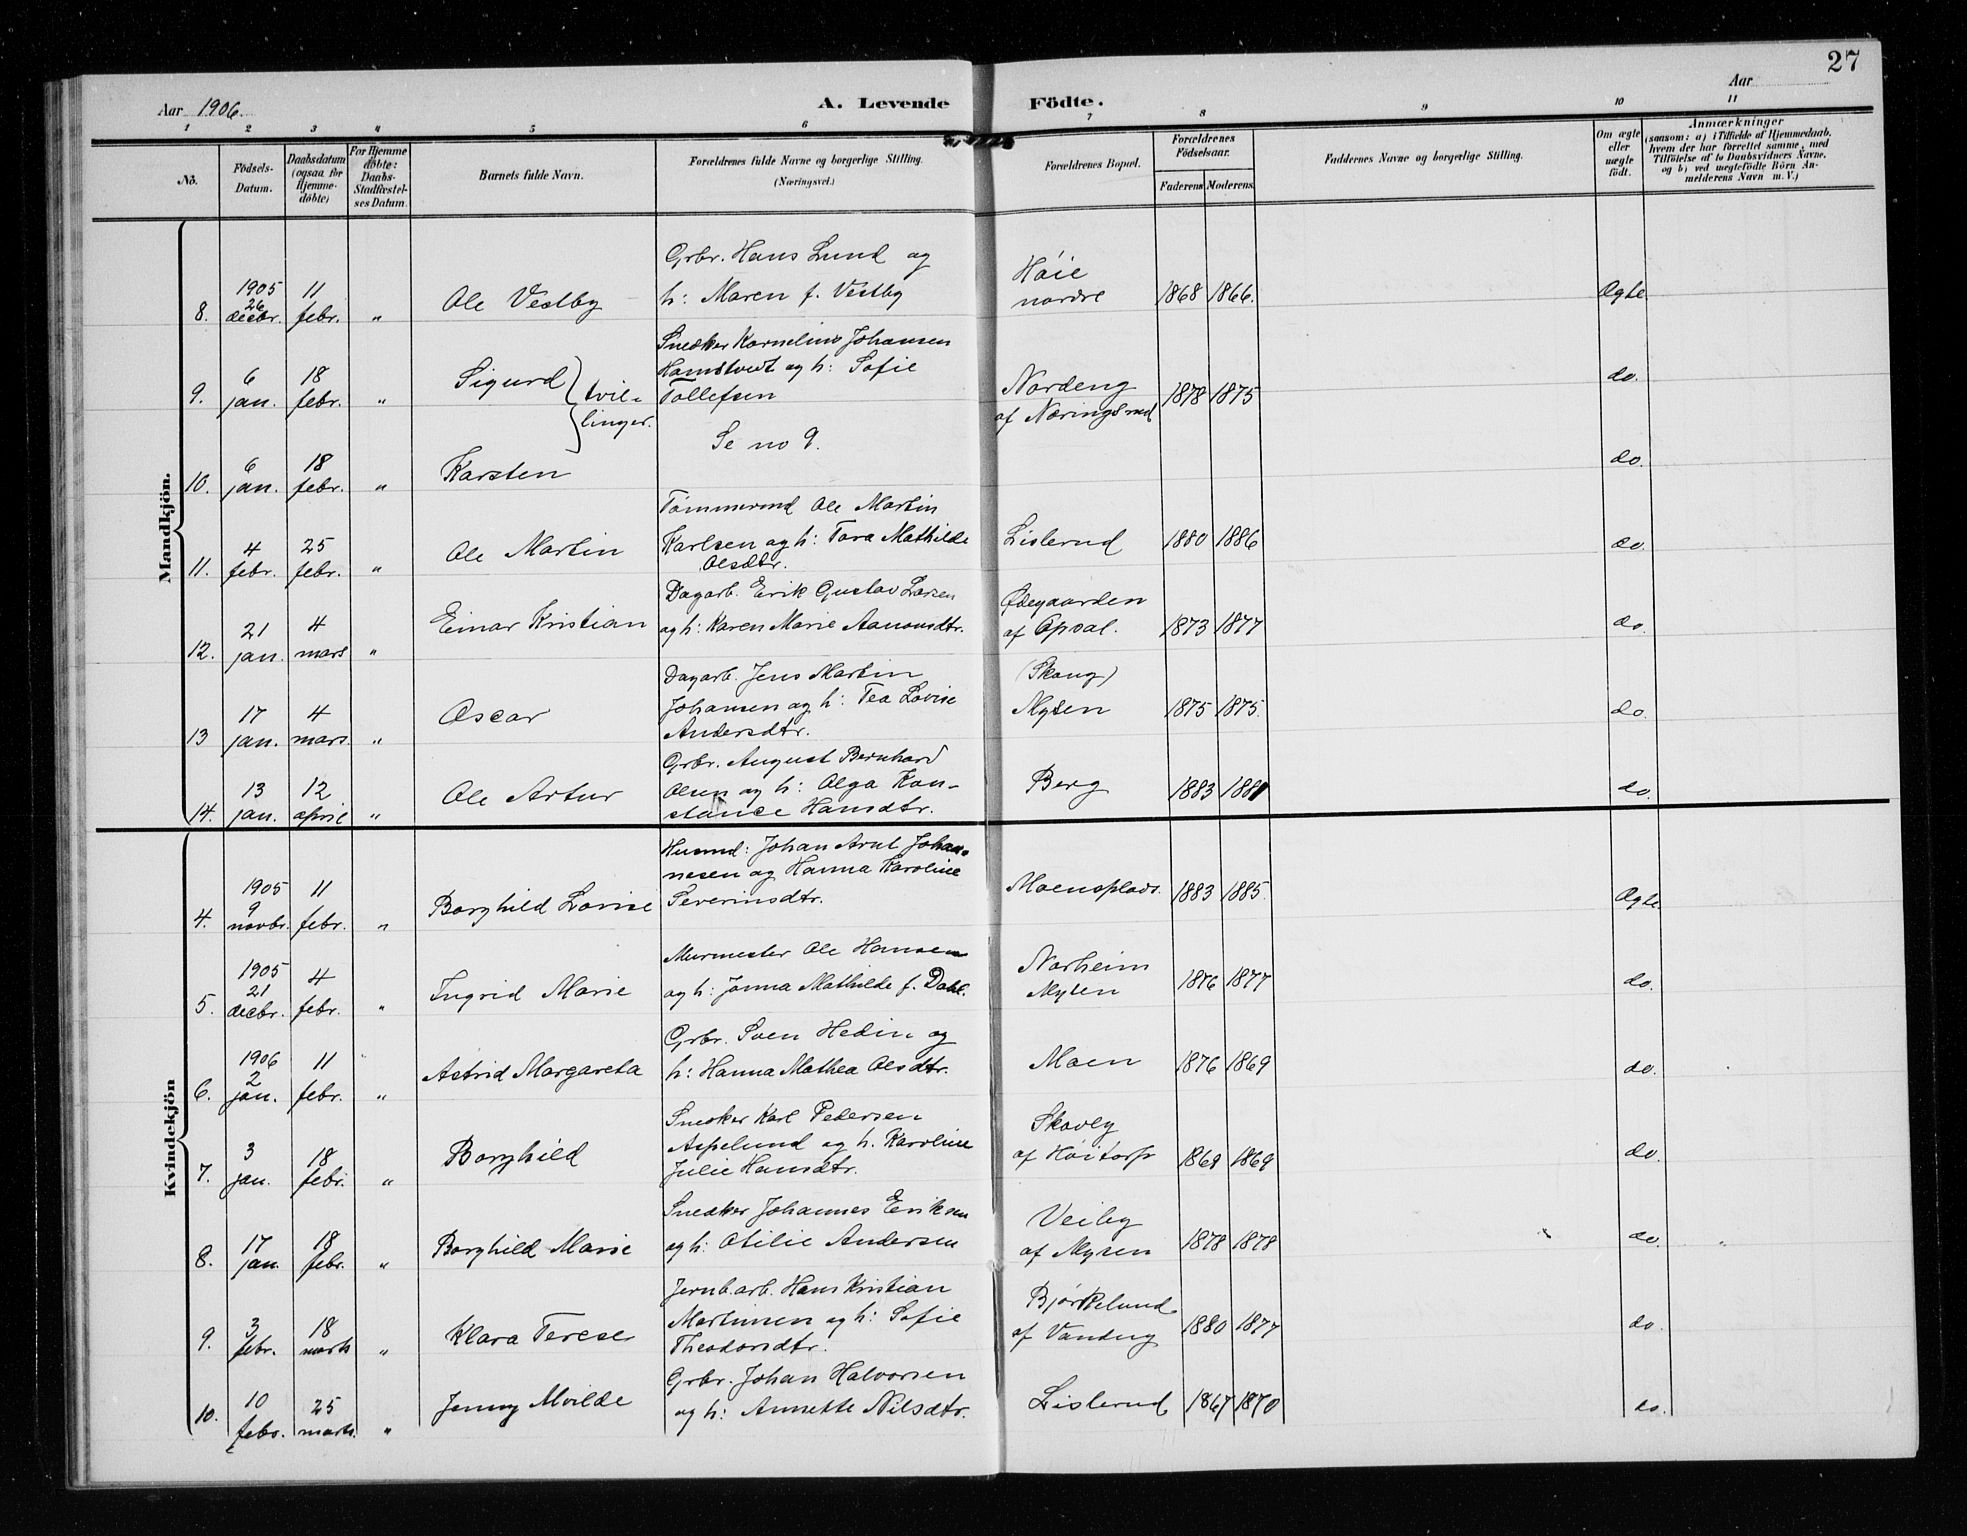 27
Aar 1906.
A. Levende Födte.
Aar
1 2 3 4 5 6 7 8 9 10 11
No.
Födsels-Datum.
Daabsdatum (ogsaa for Hjemme-døbte)
For Hjemme døbte: Daabs-Stadfæstel-ses Datum.
Barnets fulde Navn.
Forældrenes fulde Navne og borgerlige Stilling. (Næringsvei.)
Forældrenes Bopæl.
Forældrenes Födselsaar.
Faderens Moderens.
Faddernes Navne og borgerlige Stilling.
Om ægte eller uægte födt.
Anmærkninger
(saasom: a) i Tilfælde af Hjemmedaab, hvem der har forrettet samme, med Tilföielse af to Daabsvidners Navne, og b) ved uægtefödte Börn An-melderens Navn m. V.)
Mandkjön.
8. 1905 26 decbr. 11 febr. " Ole Vestby Grbr. Hans Lund og h: Maren f. Vestby Høie nordre 1868 1866. Ægte
9. 6 jan. 18 febr. " Sigurd } tvil-linger. Snedker Kornelius Johansen Hamstvedt og h: Sofie Tollefsen Nordeng af Næringsrud 1878 1875 do.
10. 6 jan. 18 febr. " Karsten Se no 9. do.
11. 4 febr. 25 febr. " Ole Martin Tømmermd Ole Martin Karlsen og h: Tora Mathilde Olsdtr. Lislerud 1880 1886 do.
12. 21 jan. 4 mars " Einar Kristian Dagarb. Erik Gustav Larsen og h: Karen Marie Aanonsdtr. Ødegaarden af Opsal. 1873 1877 do.
13 17 jan. 4 mars. " Oscar Dagarb. Jens Martin Johansen og h: Tea Lovise Andersdtr. (Skaug) Mysen 1875 1875. do.
14. 13 jan. 12 april " Ole Artur Grbr. August Bernhard Olsen og h: Olga Kon-stance Hansdtr. Berg 1883 1881 do.
Kvindekjön
4. 1905 9 novbr. 11 febr. " Borghild Lovise Husmd: Johan Arnt Johan-nesen og Hanna Karoline Severinsdtr. Moensplads. 1883 1885. Ægte.
5. 1905 21 decbr. 4 febr. " Ingrid Marie Murmester Ole Hansen og h: Jonna Mathilde f. Dahl. Norheim Mysen 1876 1877 do.
6. 1906 2 jan. 11 febr. " Astrid Margareta Grbr. Sven Hedin og h: Hanna Mathea Olsdtr. Moen 1876 1869 do.
7. 3 jan. 18 febr. " Borghild Snedker Karl Pedersen Aspelund og h. Karoline Julie Hansdtr. Skovly af Høitorp 1869 1869 do.
8. 17 jan. 18 febr. " Borghild Marie Snedker Johannes Eriksen og h: Otilie Andersen Veiby af Mysen 1878 1878 do. "
9. 3 febr. 18 marts " Klara Terese Jernb.arb. Hans Kristian Martinsen og h: Sofie Theodorsdtr. Bjørkelund af Vandug 1880 1877 do.
10. 10 febr. 25 marts. " Jenny Mvilde Grbr. Johan Halvorsen og h: Annette Nilsdtr. Lislerud 1867 1870 do.